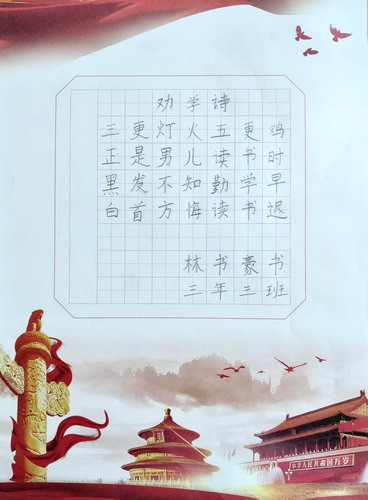 劝学诗
三更灯火五更鸡
正是男儿读书时
黑发不知勤学早
白首方悔读书迟
林书豪书
三年三班
中华人民共和国万岁